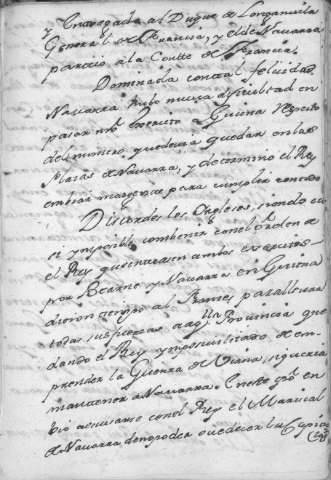 y Entregada al Duque de Longavila
General de Francia, y el de Navarra
parecio à la Corte de Francia.
Dominada con tal felicidad
Navarra hubo mucha dificultad en
pasar nro exercito à Guiena respecto
del numero que devia quedar en las
Plazas de Navarra, y determino el Rey
embiar mas gente para cumplir con todo
Discordes los Ingleses, siendo
si ymposible convenir con el orden de
el Rey que entrasen ambos exercitos
por Bearne y Navarra en Guiena
dieron tiempo al Frances para llevar
todas sus fuerzas a aqlla Provincia que
dando el Rey ymposibilitado de em
prender la Guerra de Guiena, si queria
mantener à Navarra. En este tpo en
bió a escusarse con el Rey el Mariscal
de Navarra de no poder obedecer la